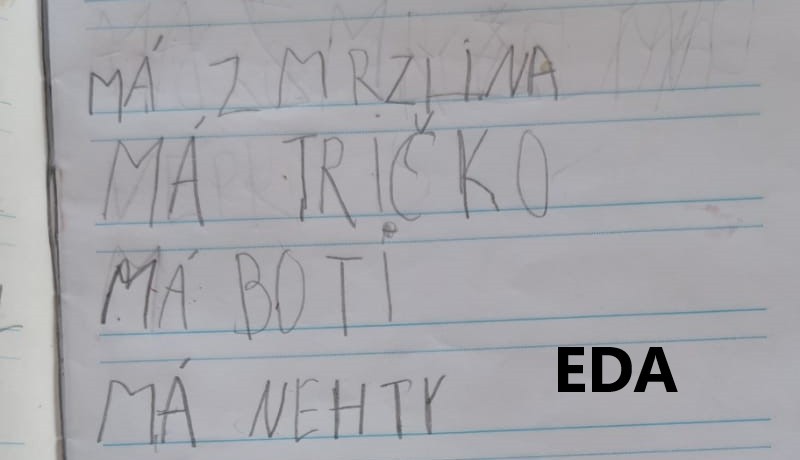 MÁ ZMRZLINA
MÁ TRIČKO
MÁ BOTI
MÁ NEHTY
EDA